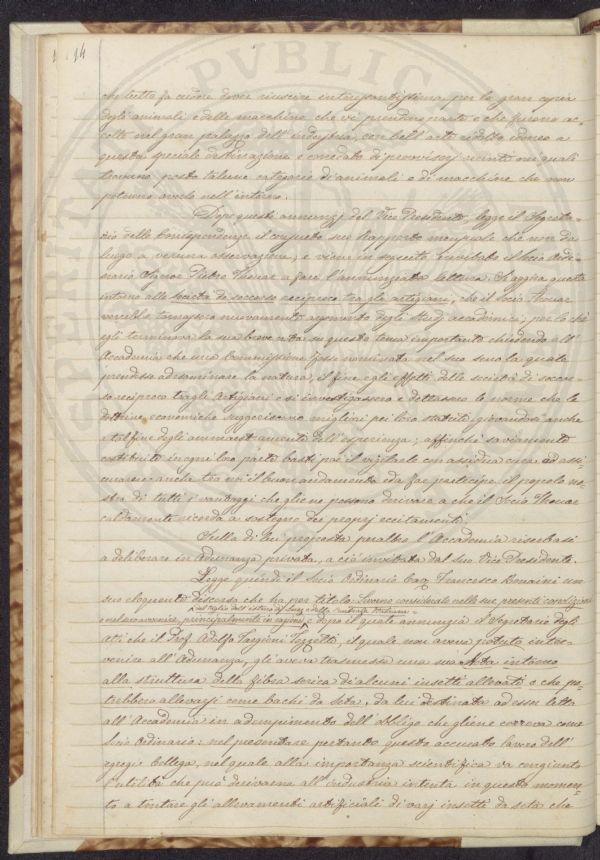 14
con tutto fa credere dover riuscire interessantissima per la gran copia
degli animali e delle macchine che vi prenderanno parte e che furono ac-
colte nel gran palazzo dell'industria, con bell'arte ridotto idoneo a
questa speciale destinazione e corredato di provvisorj recinti nei quali
trovarono posto talune categorie di animali e di macchine che non
poterono averlo nell'interno.
Dopo questi annunzj del Vice Presidente, legge il Segreta-
rio delle Corrispondenze il consueto suo Rapporto mensuale che non dà
luogo a veruna osservazione, e viene in seguito invitato il Socio Ordi-
nario Signor Pietro Thouar a fare l'annunziata lettura. Si aggira questa
intorno alle Società di soccorso reciproco tra gli artigiani, che il Socio Thouar
vorrebbe tornassero nuovamente argomento degli Studj accademici; per lo che
egli terminava la sua breve nota su questo tema importante chiedendo all'
Accademia che una Commissione fosse nominata nel suo seno la quale
prendesse ad esaminare la natura, il fine e gli effetti delle società di soccor-
so reciproco tra gli Artigiani e si investigassero e dettassero le norme che le
dottrine economiche suggeriscono migliori pei loro statuti giovandosi anche
a tal fine degli ammaestramenti dell'esperienza; affinchè saviamente
costituite in ogni loro parte basti poi il vigilarle con assidua cura ad assi-
curarne anche tra noi il buono andamento e da far partecipe il popolo no-
stro di tutti i vantaggi che gliene possono derivare e che il Socio Thouar
caldamente ricorda a sostegno dei proprj eccitamenti.
Sulla di lui proposta peraltro l'Accademia riserbasi
a deliberare in Adunanza privata, a ciò invitata dal suo Vice Presidente.
Legge quindi il Socio Ordinario Cav. Francesco Bonaini un
suo eloquente discorso che ha per titolo: Livorno considerata nelle sue presenti condizioni
e nel suo avvenire, principalmente in ragione
del taglio dell'istmo di Suez e della
e dopo il quale annunzia il Segretario degli
Atti che il Prof. Adolfo Targioni Tozzetti, il quale non aveva potuto inter-
venire all'Adunanza, gli aveva trasmessa una sua Nota intorno
alla struttura della fibra serica di alcuni insetti allevati o che po-
trebbero allevarsi come bachi da Seta, da lui destinata ad esser letta
all'Accademia in adempimento dell'obbligo che gliene correva come
Socio Ordinario: nel presentare pertanto questo accurato lavoro dell'
egregio Collega, nel quale alla importanza scientifica va congiunta
l'utilità che può derivarne all'industria intenta in questo momen-
to a tentare gli allevamenti artificiali di varj insetti da seta che